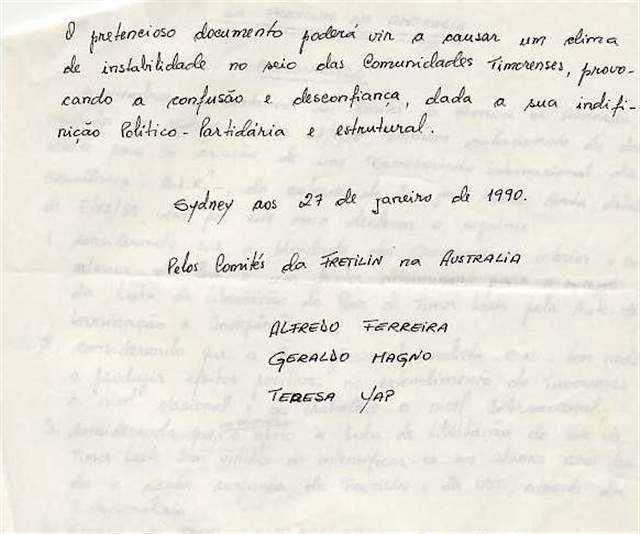 O pretencioso documento poderá vir a causar um clima
de instabilidade no seio das Comunidades Timorenses, provo-
cando a confusão e desconfiança, dada a sua indifi-
nição Político-Partidária e estrutural.
Sydney aos 27 de janeiro de 1990.
Pelos Comités da FRETILIN na AUSTRALIA
ALFREDO FERREIRA
GERALDO MAGNO
TERESA YAP